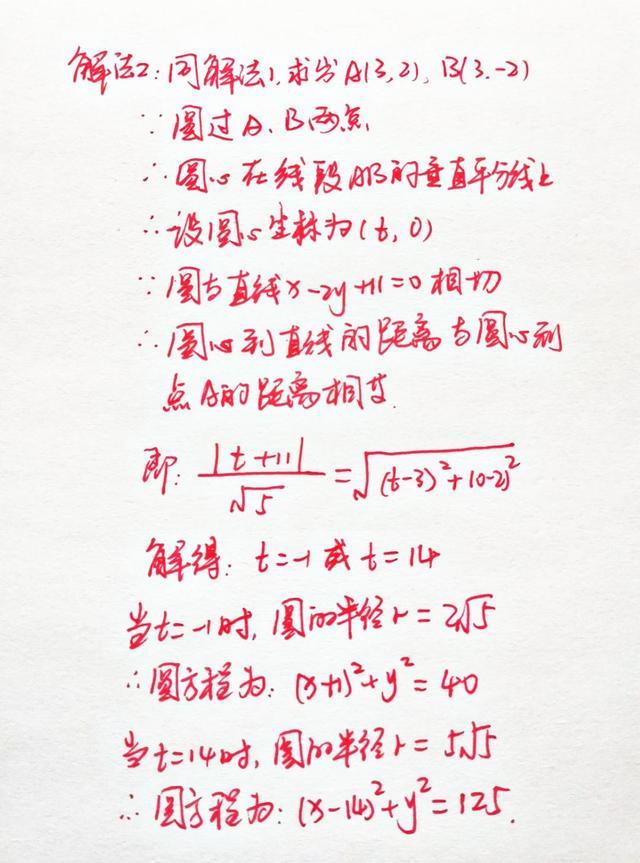 解法2:同解法1,求出A(3,2),B(3,-2)
∵圆过A、B两点
∴圆心在线段AB的垂直平分线上
∴设圆心坐标为(t,0)
∵圆与直线x-2y+11=0相切
∴圆心到直线的距离与圆心到
点A的距离相等.
即: |t+11|/√5 = √((t-3)²+(0-2)²)
解得: t=-1或t=14
当t=-1时,圆的半径r=2√5
∴圆方程为: (x+1)²+y²=40
当t=14时,圆的半径r=5√5
∴圆方程为: (x-14)²+y²=125.